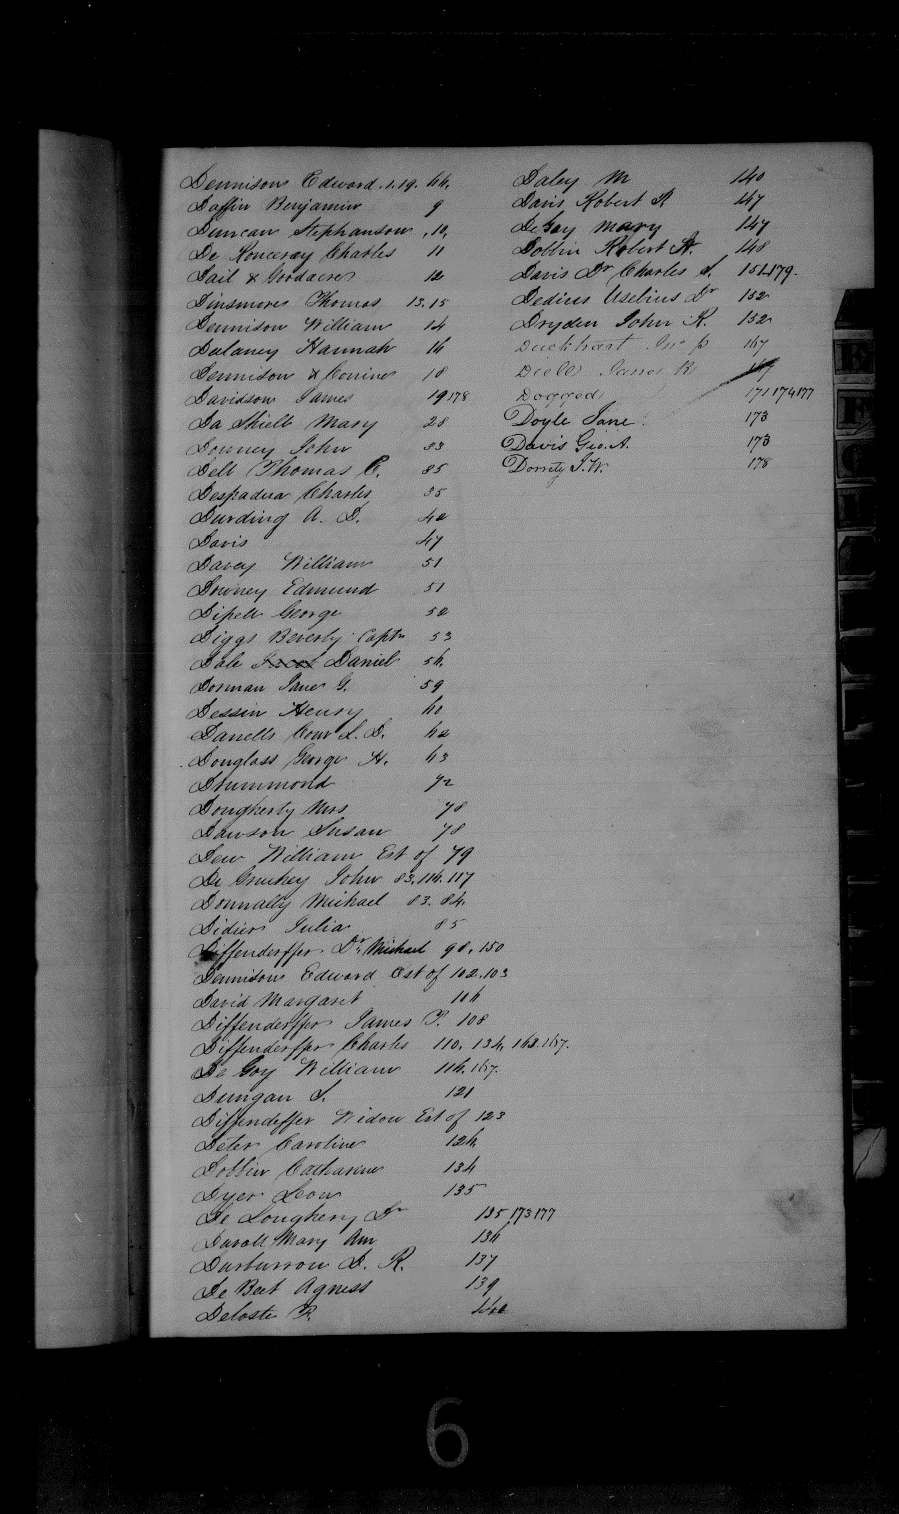 Dennison Edward . 1. 19. 66.
Daffin Benjamin 9
Duncan Stephanson . 10,
De Ronceray Charles 11
Dail & Goodacre 12
Dinsmore Thomas 13. 15
Dennison William 14
Dulaney Hannah 16
Dennison & 18
Davidson James 19 178
Da Shiell Mary 28
Downey John 33
Dell Thomas C. 35
Charles 35
Durding A. D. 42
Davis 47
Davey William 51
Downey Edmund 51
George 52
Diggs Beverly Captn 53
Dale Daniel 56.
Dorman Jane G. 59
Dessin Henry 60
Danells Com J. D. 62
Douglass George H. 63
Drummond 72
Dougherty Mrs 78
Dawson Susan 78
Dew William Est of 79
De John 83. 116. 117
Donnally Michael 83. 84.
Didier Julia 85
Diffenderffer Dr. Michael 98. 150
Dennison Edward Est of 102. 103
David Margaret 106
Diffenderffer James P. 108
Diffenderffer Charles 110. 134. 162. 167.
De Goy William 116. 167.
Dungan J. 121
Diffendeffer Widow Est of 123
Deter Caroline 126.
Dobbin Catharine 134
Dyer Leon 135
De Loughery Dr 135 173 177
Mary Ann 136
Darburrow D. R. 137
De Bert Agness 139
Deloste F. 140
Daley M 140
Davis Robert 147
Mary 147
Dobbin Robert A. 148
Davis Dr Charles S. 151. 179.
Usebius Dr 152
Dryden John R. 152
Duckhart Jno P 167
Diell James R 167
Dogged 171 174 177
Doyle Jane 173
Davis Geo. A. 173
Dorrity J. W. 178
6